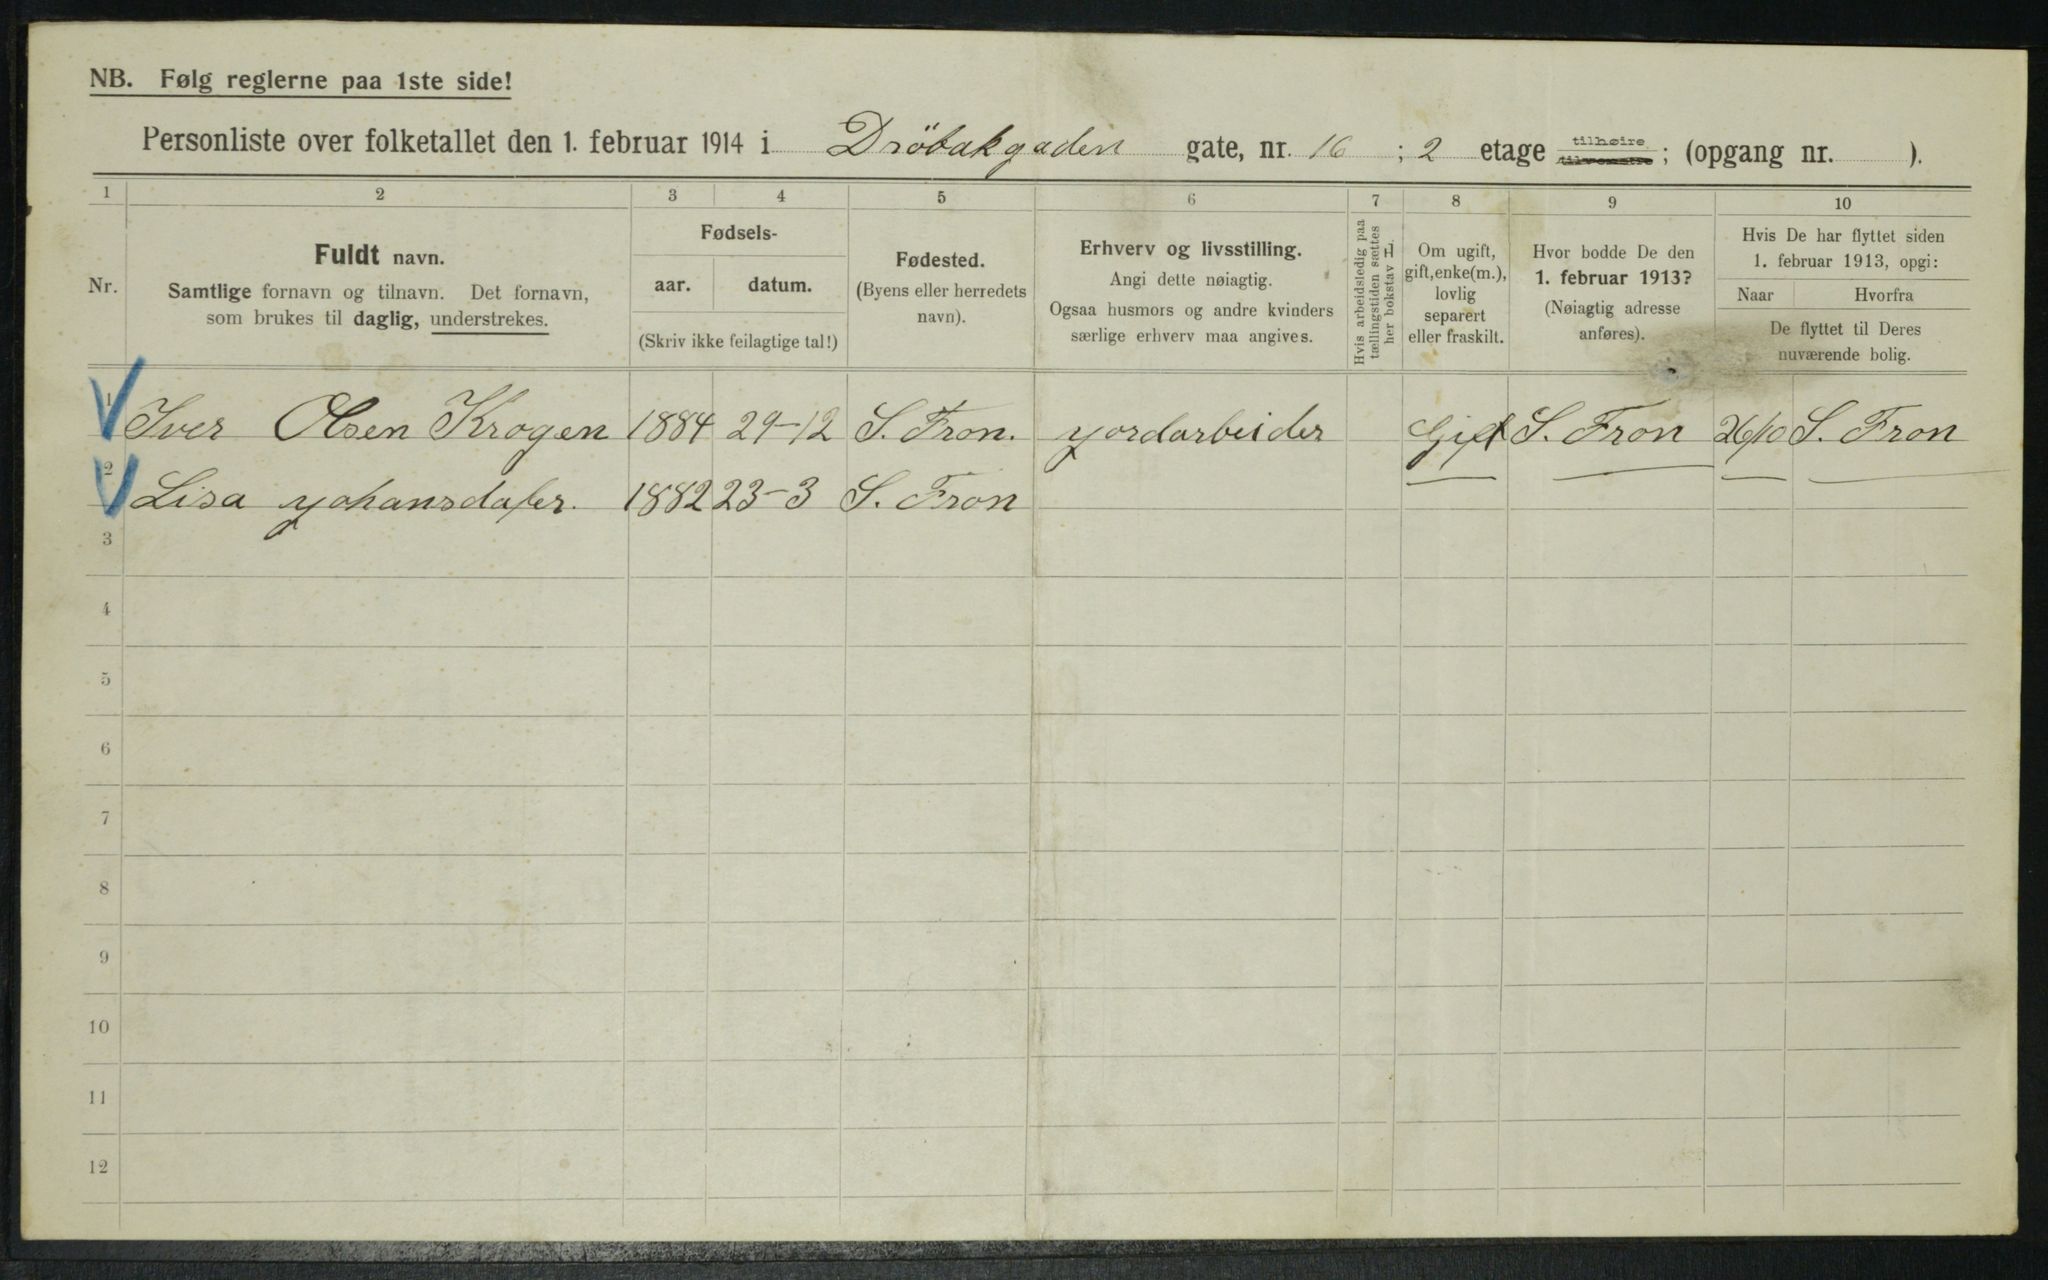 NB. Følg reglerne paa 1ste side!
Personliste over folketallet den 1. februar 1914 i Dröbakgaden gate, nr. 16 ; 2 etage tilhøire tilvenstre ; (opgang nr. ).
1 2 3 4 5 6 7 8 9 10
Nr.
Fuldt navn.
Samtlige fornavn og tilnavn. Det fornavn,
som brukes til daglig, understrekes.
Fødsels-
aar. datum.
(Skriv ikke feilagtige tal!)
Fødested.
(Byens eller herredets
navn).
Erhverv og livsstilling.
Angi dette nøiagtig.
Ogsaa husmors og andre kvinders
særlige erhverv maa angives.
Hvis arbeidsledig paa
tællingstiden sættes
her bokstav L
Om ugift,
gift, enke(m.),
lovlig
separert
eller fraskilt.
Hvor bodde De den
1. februar 1913?
(Nøiagtig adresse
anføres).
Hvis De har flyttet siden
1. februar 1913, opgi:
Naar Hvorfra
De flyttet til Deres
nuværende bolig.
1 Iver Olsen Krogen 1884 29-12 S. Fron. yordarbeider Gift S. Fron 26/10 S. Fron
2 Lisa yohansdater. 1882 23-3 S. Fron
3
4
5
6
7
8
9
10
11
12